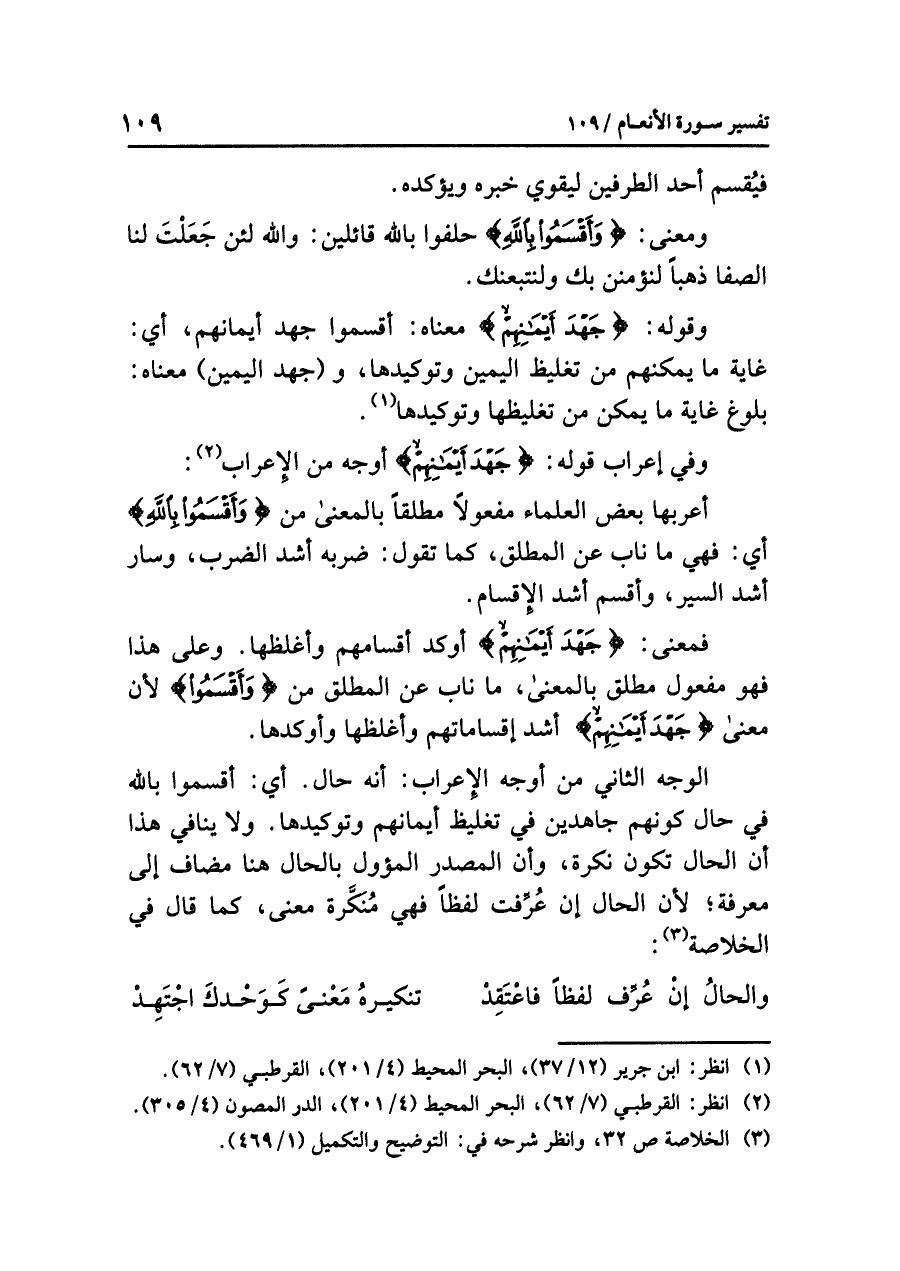 تفسير سورة الأنعام / ١٠٩ ١٠٩
فيُقسم أحد الطرفين ليقوي خبره ويؤكده.
ومعنى: ﴿وَأَقْسَمُوا بِاللَّهِ﴾ حلفوا بالله قائلين: والله لئن جَعَلْتَ لنا
الصفا ذهباً لنؤمنن بك ولنتبعنك.
وقوله: ﴿جَهْدَ أَيْمَٰنِهِمْ﴾ معناه: أقسموا جهد أيمانهم، أي:
غاية ما يمكنهم من تغليظ اليمين وتوكيدها، و (جهد اليمين) معناه:
بلوغ غاية ما يمكن من تغليظها وتوكيدها(١).
وفي إعراب قوله: ﴿جَهْدَ أَيْمَٰنِهِمْ﴾ أوجه من الإعراب(٢):
أعربها بعض العلماء مفعولاً مطلقاً بالمعنىٰ من ﴿وَأَقْسَمُوا بِاللَّهِ﴾
أي: فهي ما ناب عن المطلق، كما تقول: ضربه أشد الضرب، وسار
أشد السير، وأقسم أشد الإقسام.
فمعنى: ﴿جَهْدَ أَيْمَٰنِهِمْ﴾ أوكد أقسامهم وأغلظها. وعلى هذا
فهو مفعول مطلق بالمعنىٰ، ما ناب عن المطلق من ﴿وَأَقْسَمُوا﴾ لأن
معنىٰ ﴿جَهْدَ أَيْمَٰنِهِمْ﴾ أشد إقساماتهم وأغلظها وأوكدها.
الوجه الثاني من أوجه الإعراب: أنه حال. أي: أقسموا بالله
في حال كونهم جاهدين في تغليظ أيمانهم وتوكيدها. ولا ينافي هذا
أن الحال تكون نكرة، وأن المصدر المؤول بالحال هنا مضاف إلى
معرفة؛ لأن الحال إن عُرِّفت لفظاً فهي مُنَكَّرة معنى، كما قال في
الخلاصة(٣):
والحالُ إنْ عُرِّف لفظاً فاعْتَقِدْ تنكيرهُ مَعْنىً كَوَحْدكَ اجْتَهِدْ
(١) انظر: ابن جرير (١٢/ ٣٧)، البحر المحيط (٤/ ٢٠١)، القرطبي (٧/ ٦٢).
(٢) انظر: القرطبي (٧/ ٦٢)، البحر المحيط (٤/ ٢٠١)، الدر المصون (٤/ ٣٠٥).
(٣) الخلاصة ص ٣٢، وانظر شرحه في: التوضيح والتكميل (١/ ٤٦٩).